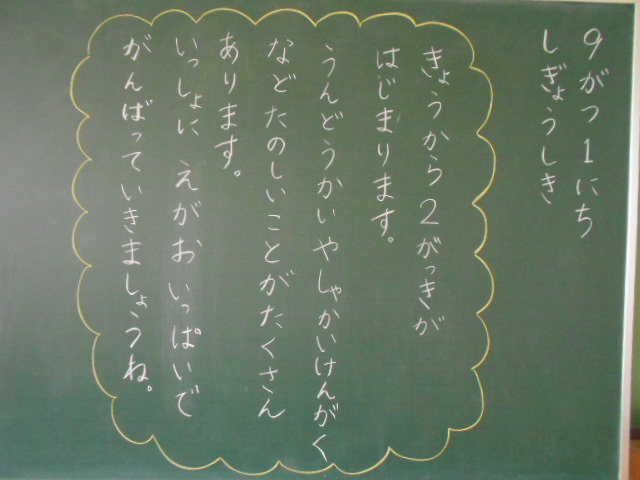 9がつ1にち
しぎょうしき
きょうから2がっきが
はじまります。
うんどうかいやしゃかいけんがく
などたのしいことがたくさん
あります。
いっしょに えがおいっぱいで
がんばっていきましょうね。